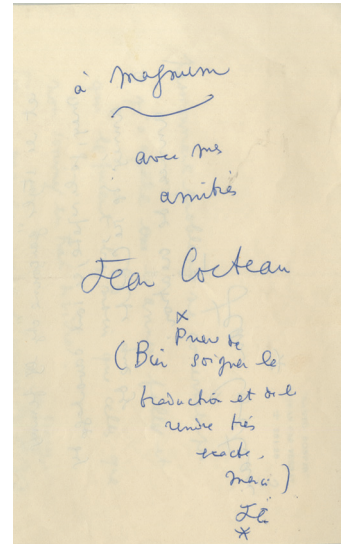 à Magnum
avec mes
amitiés
Jean Cocteau
Prière de
(Bien soigner la
traduction et de la
rendre très
exacte.
merci)